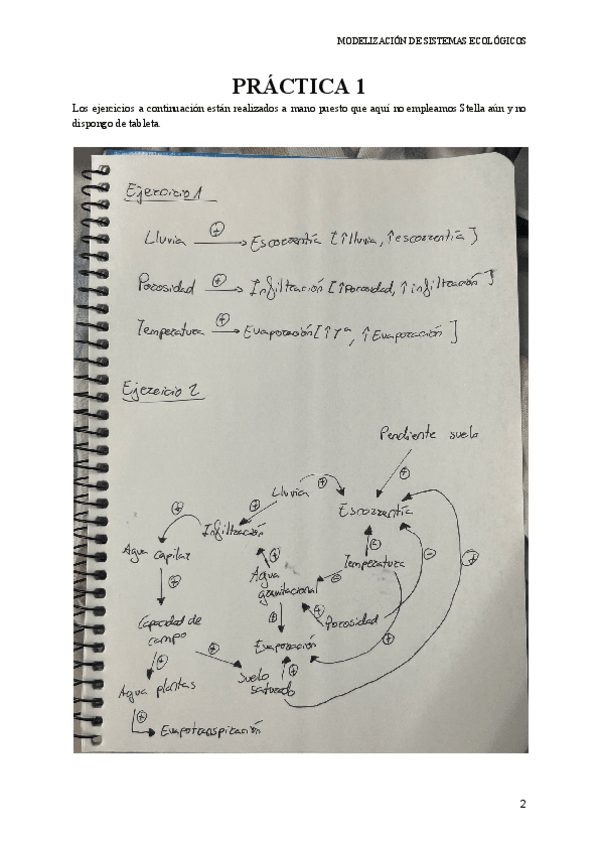 MODELIZACIÓN DE SISTEMAS ECOLÓGICOS
PRÁCTICA 1
Los ejercicios a continuación están realizados a mano puesto que aquí no empleamos Stella aún y no
dispongo de tableta.
Ejercicio 1
Lluvia + Escorrentía [↑lluvia, ↑escorrentía]
Porosidad + Infiltración [↑Porosidad, ↑infiltración]
Temperatura + Evaporación [↑Tª, ↑Evaporación]
Ejercicio 2
Pendiente suelo
+
Lluvia + Escorrentía
+
Infiltración
+
Agua capilar
+
Agua gravitacional
+
Temperatura
-
Capacidad de campo
+
Porosidad
+
Evaporación
+
Suelo saturado
+
Agua plantas
+
Evapotranspiración
2